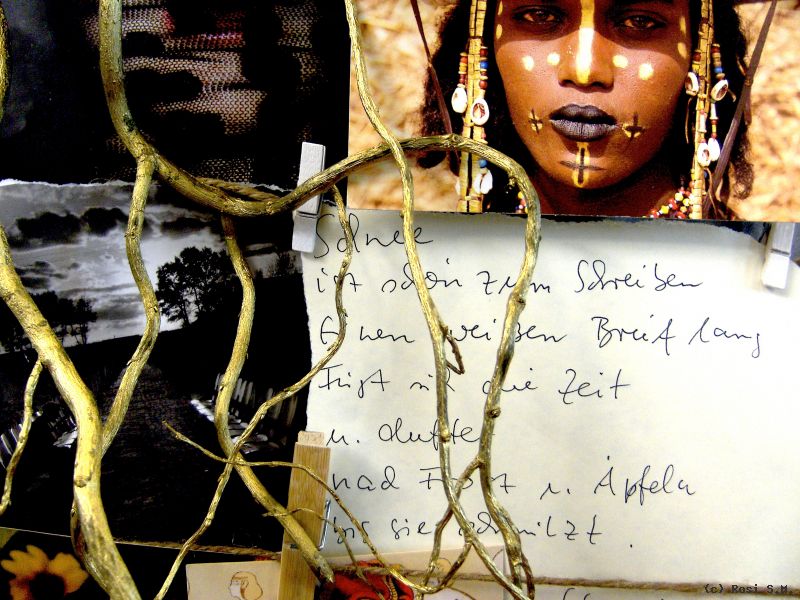 Schnee
ist schön zum Schreiben
Einen weißen Brief lang
Fügt sich die Zeit
u. duftet
nach Frost u. Äpfeln
bis sie schmilzt.
(c) Rosi S.M